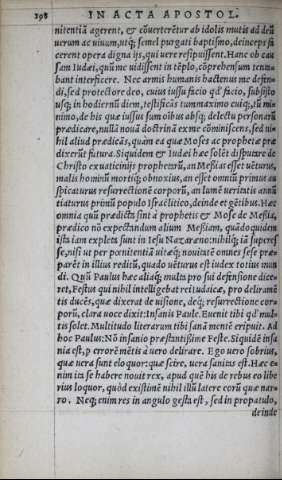 198 IN ACTA APOSTOL.
nitentiã agerent, & cõuerterẽtur ab idolis mutis ad deũ
uerum ac uiuum, utq; semel purgati baptismo, deinceps fa
cerent opera digna ijs, qui uere resipuissent. Hanc ob cau
sam Iudæi, quũ me uidissent in tẽplo, cõprehensum tenta-
bant interficere. Nec armis humanis hactenus me defen-
di, sed protectore deo, cuius iussu facio qđ facio, subsisto
usq; in hodiernũ diem, testificãs tum maximo cuiq; , tũ mi
nimo, de his quæ iussus sum oibus absq; delectu personarũ
prædicare, nullã nouã doctrinã ex me cõminiscens, sed ni-
hil aliud prædicãs, quàm ea quæ Moses ac prophetæ præ
dixerũt futura. Siquidem & Iudæi hæc solẽt disputare de
Christo ex uaticinijs prophetarũ, an Messias esset uẽturus,
malis hominũ mortiq; obnoxius, an esset omniũ primus au
spicaturus resurrectionẽ corporũ, an lumẽ ueritatis annũ
ciaturus primũ populo Israëlitico, deinde et gẽtibus. Hæc
omnia quũ prædicta sint à prophetis & Mose de Messia,
prædico nõ expectandum alium Messiam, quãdoquidem
ista iam expleta sunt in Iesu Nazaræno: nihilq; iã superes
se, nisi ut per pœnitentiã uitæq; nouitatẽ omnes sese præ-
parẽt in illius reditũ, quado uẽturus est iudex totius mun
di. Quũ Paulus hæc aliaq; multa pro sui defensione dice-
ret, Festus qui nihil intelligebat rei Iudaicæ, pro deliramẽ
tis ducẽs, quæ dixerat de uisione, deq; resurrectione cor-
porũ, clara uoce dixit: Insanis Paule. Euenit tibi qđ mul-
tis solet. Multitudo literarum tibi sanã mentẽ eripuit. Ad
hoc Paulus: Nõ insanio præstantissime Feste. Siquidẽ insa
nia est, p errorẽ mẽtis à uero delirare. Ego uero sobrius,
quæ uera sunt eloquor: quæ scire, uera sanitas est. Hæc e-
nim ita se habere nouit rex, apud quẽ his de rebus eo libe
rius loquor, quòd existimẽ nihil illũ latere corũ quæ nar-
ro. Neq; enim res in angulo gesta est, sed in propatulo,
deinde